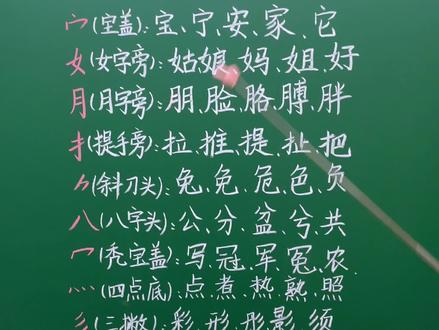 宀(宝盖):宝、宁、安、家、它
女(女字旁):姑娘、妈、姐、好
月(月字旁):朋、脸、胳、膊、胖
扌(提手旁):拉、推、提、扯、把
⺈(斜刀头):兔、免、危、色、负
八(八字头):公、分、盆、兮、共
冖(秃宝盖):写、冠、军、冤、农
灬(四点底):点、煮、热、熟、照
彡(三撇):彩、形、彤、影、须